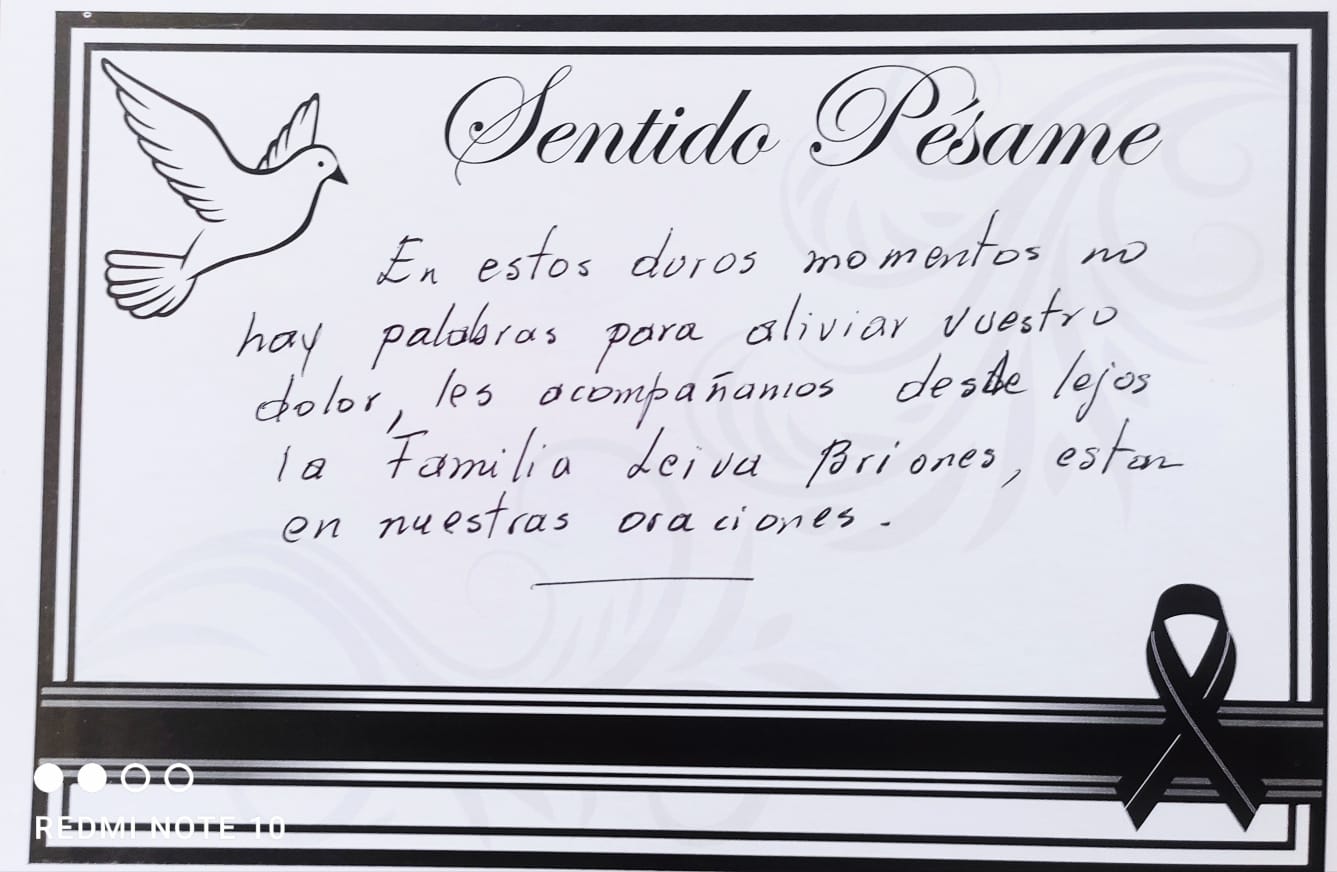 Sentido Pésame
En estos duros momentos no
hay palabras para aliviar vuestro
dolor, les acompañamos desde lejos
la Familia Leiva Briones, estan
en nuestras oraciones.
REDMI NOTE 10